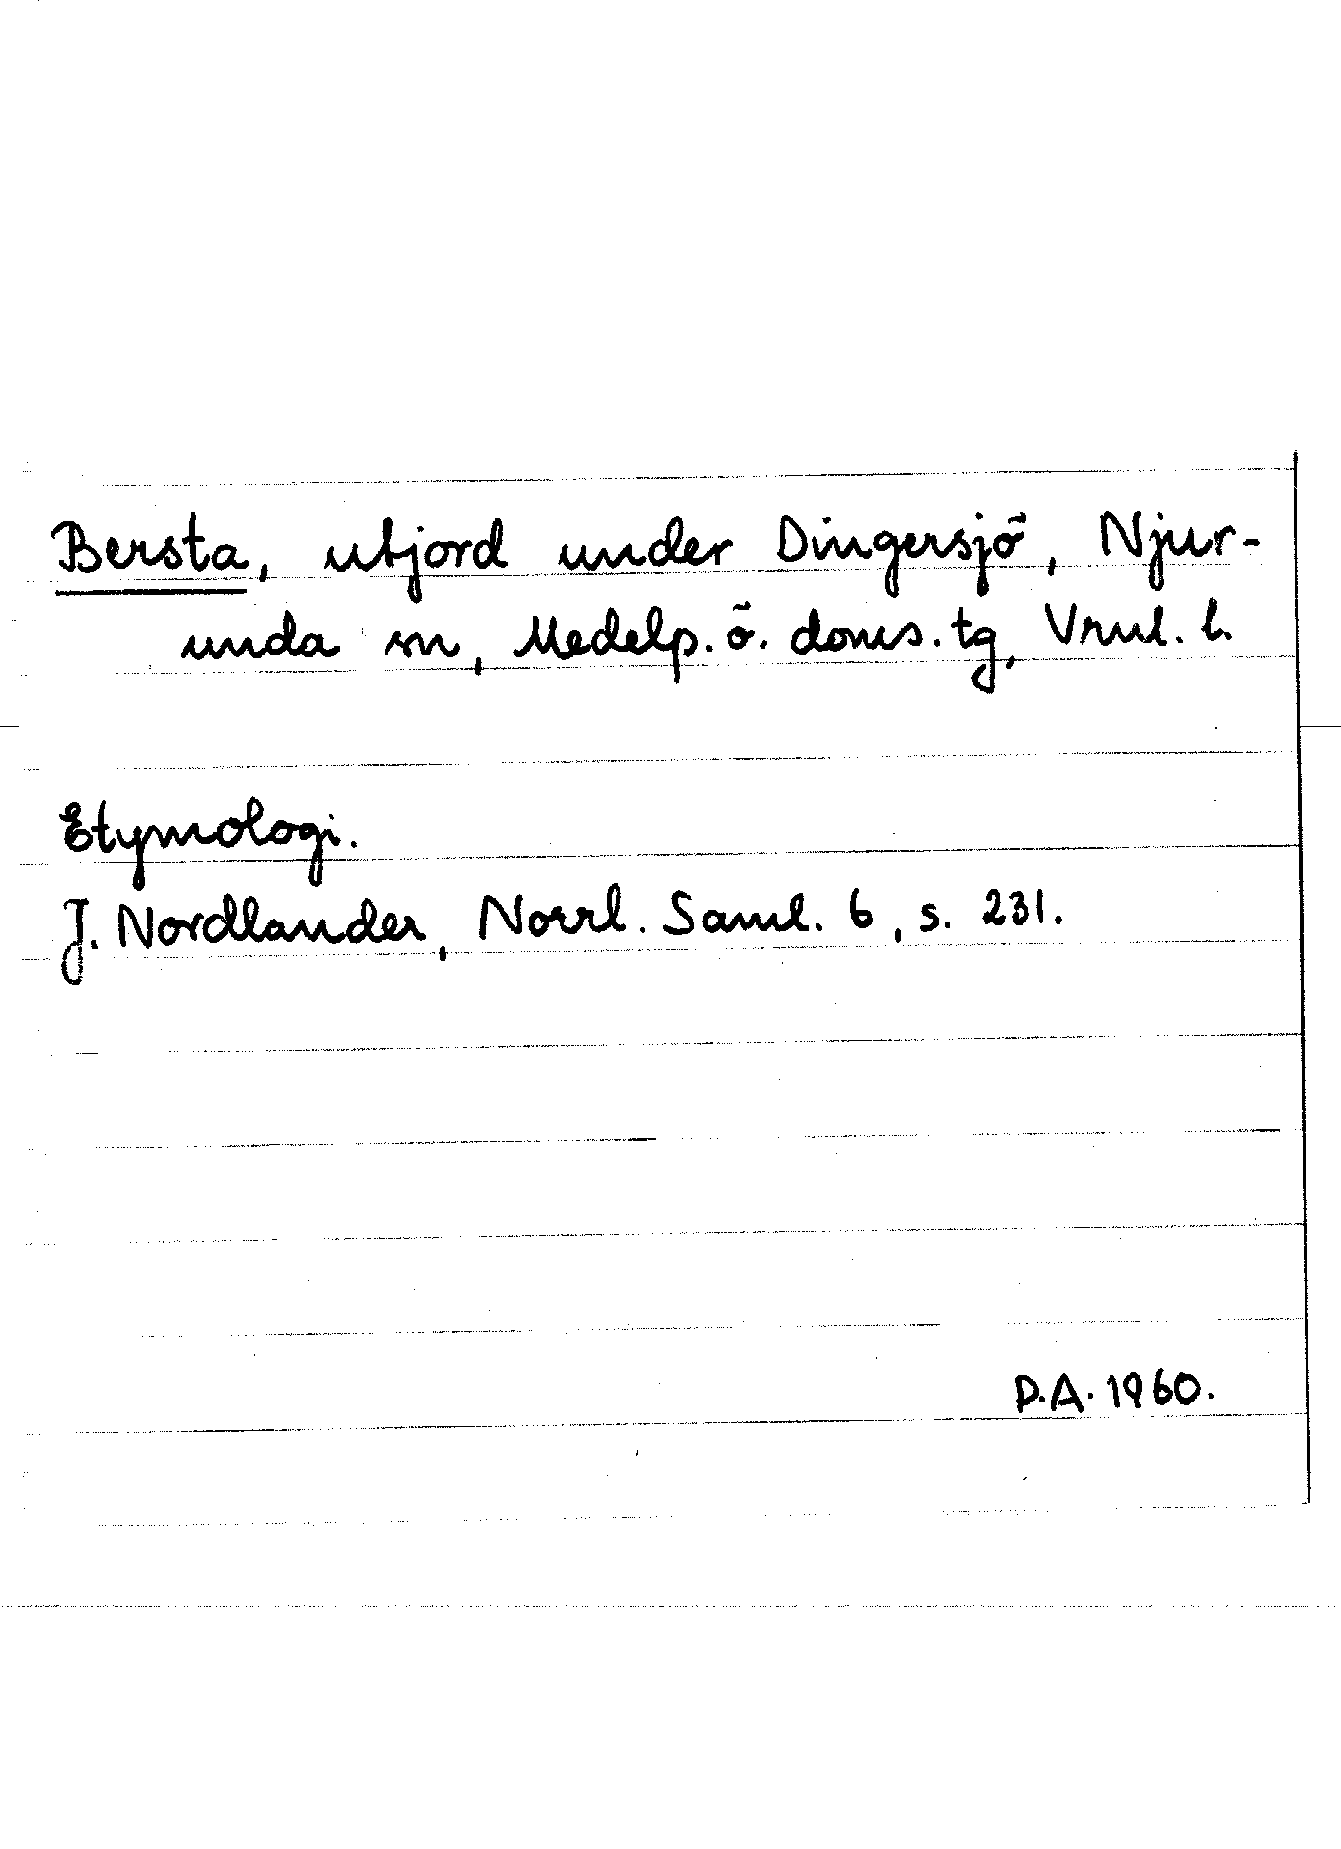 Bersta, utjord under Dingersjö, Njur-
unda sn, Medelp. ö. doms. tg, Vrnl. l.
Etymologi.
J. Nordlander, Norrl. Saml. 6, s. 231.
P.A. 1960.